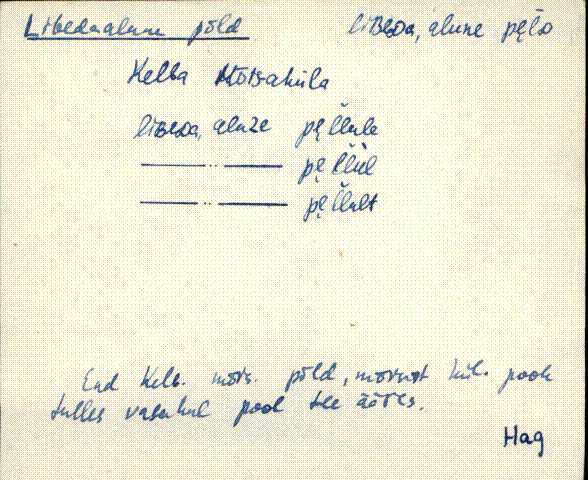 Libedaalune põld liBᴇDA, alune pe̮lD
Kelba Mõisaküla
liBᴇDA, aluze pe̮l̆lule
—— ·· —— pe̮l̆lul
—— ·· —— pe̮l̆lult
End Kelb. mõis. põld, mõisast kül. poole
tulles vasakul pool tee ääres.
Hag